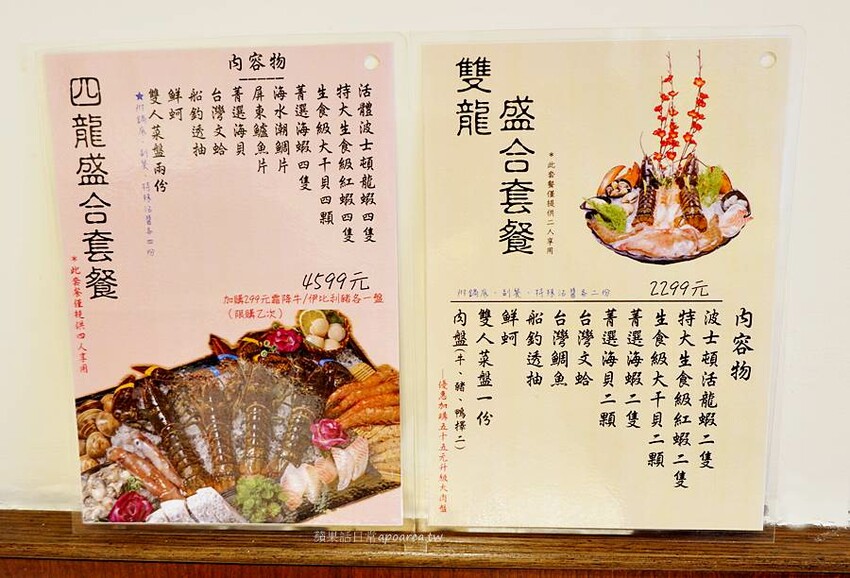 四龍盛合套餐
*此套餐僅提供四人享用
內容物
活體波士頓龍蝦四隻
特大生食級紅蝦四隻
生食級大干貝四顆
菁選海蝦四隻
海水潮鯛片
屏東鱸魚片
菁選海貝
台灣文蛤
船釣透抽
鮮蚵
雙人菜盤兩份
★附鍋底、副餐、特殊沾醬各四份
4599元
加購299元霜降牛/伊比利豬各一盤
(限購乙次)
雙龍
盛合套餐
*此套餐僅提供二人享用
附鍋底、副餐、特殊沾醬各二份
2299元
內容物
波士頓活龍蝦二隻
特大生食級紅蝦二隻
生食級大干貝二顆
菁選海蝦二隻
菁選海貝二顆
台灣文蛤
台灣鯛魚
船釣透抽
鮮蚵
雙人菜盤一份
肉盤(牛、豬、鴨擇二)
—優惠加購五十五元升級大肉盤
蘋果話日常apoarea.tw